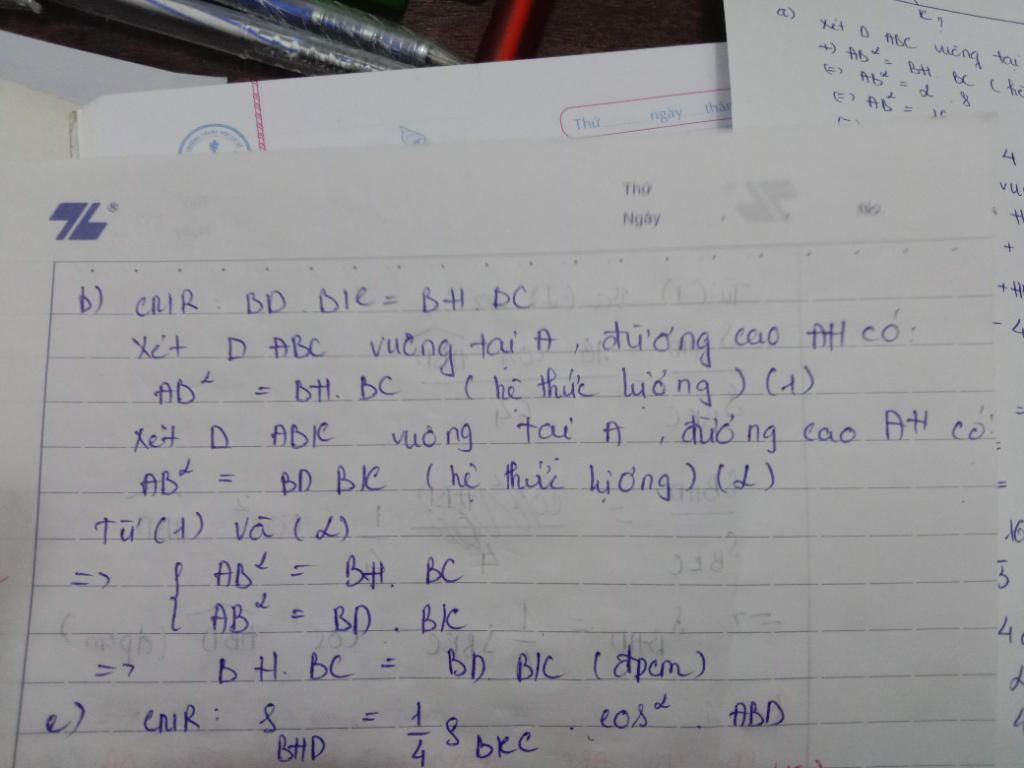 a)
K?
Xét D ABC vuông tại
+) AB² = BH BC (hệ
(=) AB² = 2 . 8
(=) AB² = 16
Thứ ngày thán
Thứ
Ngày
No.
b) CMR : BD . BK = BH . BC
Xét D ABC vuông tại A, đường cao AH có:
AB² = BH. BC (hệ thức lượng) (1)
Xét D ABK vuông tại A, đường cao AH có:
AB² = BD BK (hệ thức lượng) (2)
Từ (1) và (2)
=> { AB² = BH. BC
AB² = BD . BK
=> BH. BC = BD BK (đpcm)
c) CMR : S BHD = 1/4 S BKC . cos² . ABD